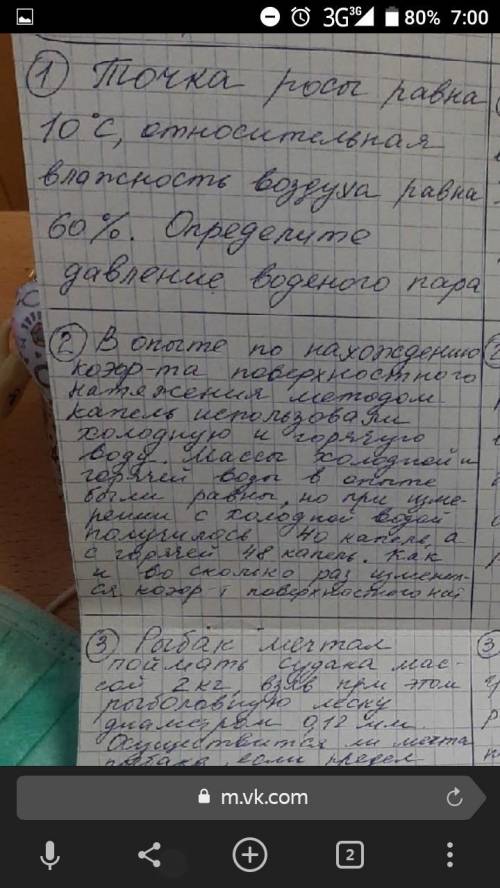 3G 3G 80% 7:00
1 Точка росы равна
10°С, относительная
влажность воздуха равна
60%. Определите
давление водяного пара
2 В опыте по нахождению
коэф-та поверхностного
натяжения методом
капель использовали
холодную и горячую
воду. Массы холодной и
горячей воды в опыте
были равны, но при изме-
рении с холодной водой
получилось 40 капель, а
с горячей 48 капель. Как
и во сколько раз изменит-
ся коэф т поверхностного нат
3 Рыбак мечтал
поймать судака мас-
сой 2 кг, взяв при этом
рыболовную леску
диаметром 0,12 мм.
Осуществится ли мечта
рыбака, если предел
3
m.vk.com
2